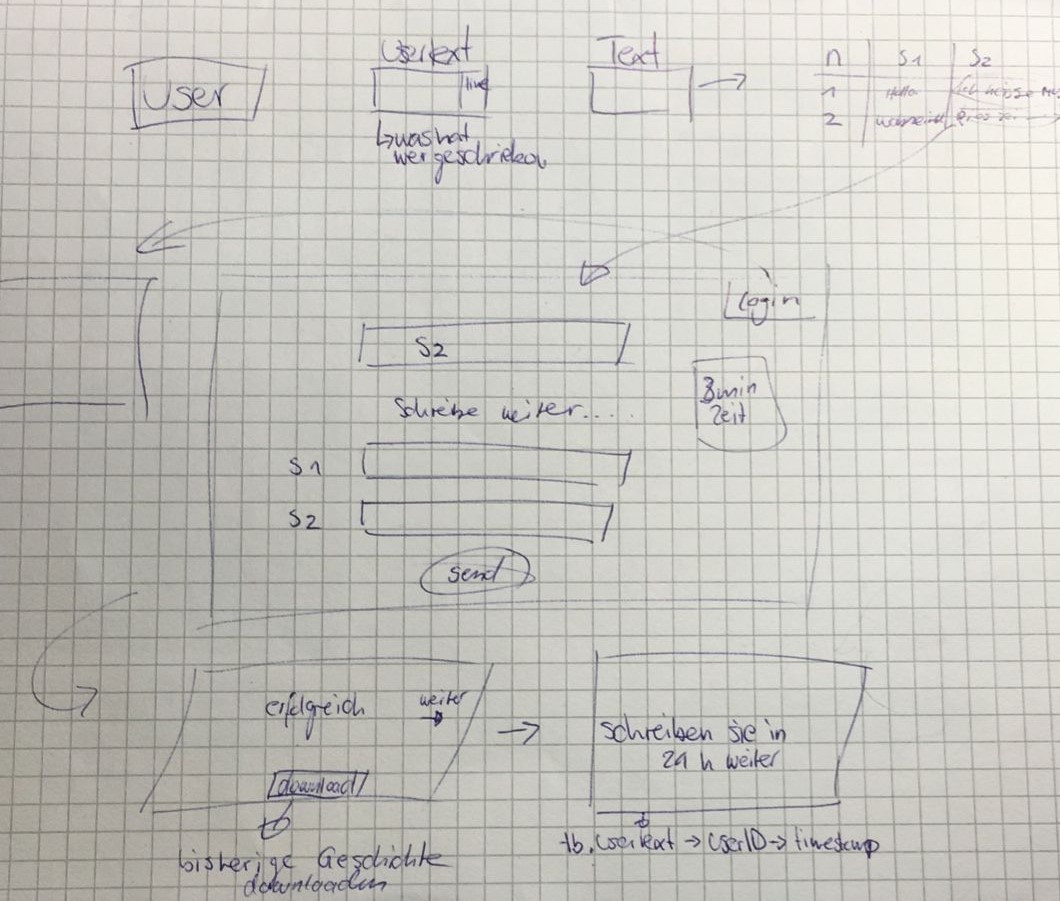 User
Usertext
time
↳ was hat
wer geschrieben
Text
n S1 S2
1 Hallo Ich heisse
2
Login
S2
3min
Zeit
Schreibe weiter.....
S1
S2
send
erfolgreich
weiter
download
bisherige Geschichte
downloaden
schreiben sie in
24 h weiter
tb.usertext → UserID → timestamp